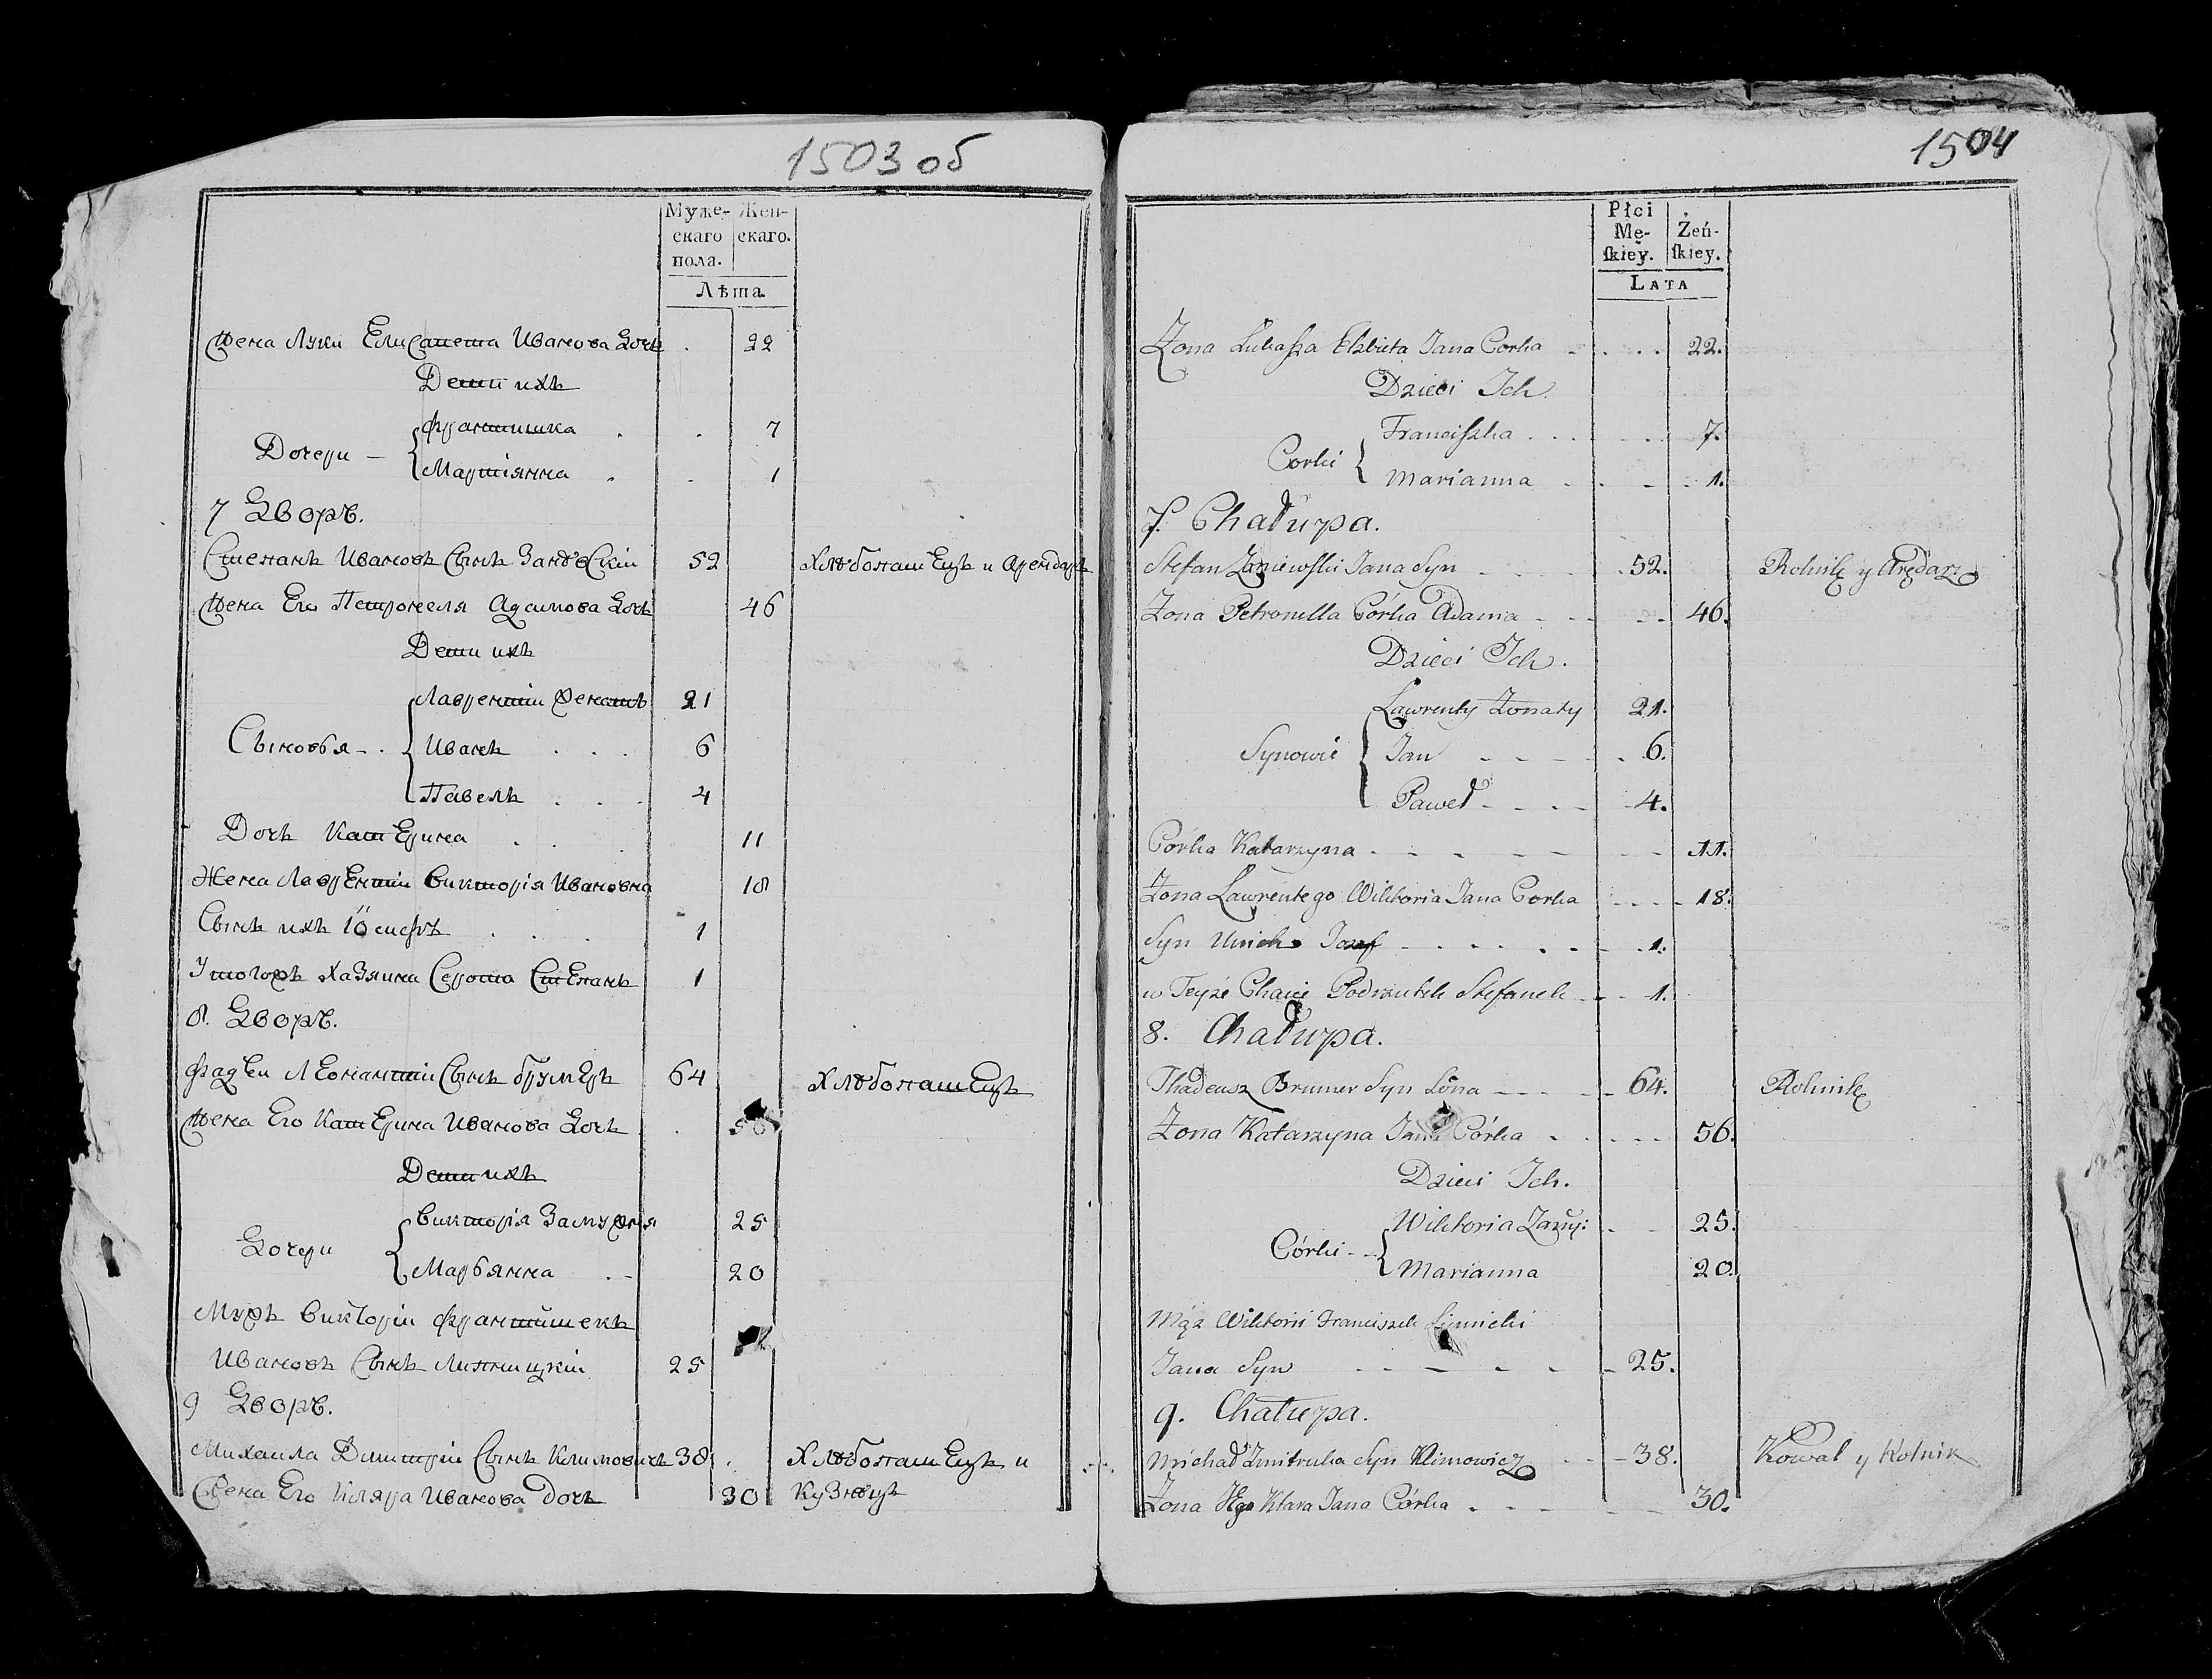 1503 об
Муже- Жен-
скаго скаго.
пола.
Лѣта
Жена Луки Елисавета Иванова Дочь . 22
Дети ихъ
Дочери — Франтишка . . 7
Марiянна . . 1
7 Дворъ.
Степанъ Ивановъ Сынъ 52 Хлѣбопашецъ и Арендарь
Жена Его Петронеля Адамова Дочь 46
Дети ихъ
Лаврентiй Женатъ 21
Сыновья - . Иванъ . . . 6
Павелъ . . . 4
Дочь Катерина . . . 11
Жена Лаврентiи Викторiя Ивановна 18
Сынъ ихъ Iосифъ . . . 1
Хазяина Серота Степанъ 1
8. Дворъ.
Фадѣи Леонантiи Сынъ Брумеръ 64 Хлѣбопашецъ
Жена Его Катерина Иванова Дочь . 56
Дети ихъ
Дочери Викторiя Замужня 25
Марьянна . - 20
Мужъ Викторiи Франтишекъ
Ивановъ Сынъ 25
9 Дворъ.
Михаила Дмитрiи Сынъ Климовичъ 38 . Хлѣбопашецъ и
Жена Его Кляра Иванова Дочь 30 Кузнецъ
1504
Płci
Mę- Żeń-
ſkiey. ſkiey.
LATA
Zona Łukaſza Elzbieta Jana Corka . . . . 22.
Dzieci Ich.
Corki Franciſzka . . . 7.
Marianna - - - 1.
7. Chałupa.
Stefan Zaniewſki Jana Syn - - - 52. Rolnik y Arędarz
Zona Petronella Córka Adama - - - 46.
Dzieci Ich.
Lawrenty Zonaty 21.
Synowie Jan - - - - 6.
Paweł - - - - 4.
Córka Katarzyna - - - - - 11.
Zona Lawrentego Wiktoria Jana Corka - - - 18.
Syn Jozef - - - - - 1.
w Teyże Chacie Podrzutek Stefanek - - 1.
8. Chałupa.
Thadeusz Brumer Syn Lona - - - - 64. Rolnik
Zona Katarzyna Jana Córka . . - - - 56.
Dzieci Ich.
Córki - - Wiktoria Zamę: - - 25.
Marianna 20.
Mąż Wiktorii Franciszek
Jana Syn - - - - - 25.
9. Chałupa.
Michał Dmitruka Syn Klimowicz - - 38. Kowal y Rolnik
Zona Jego Klara Jana Córka - - - - - 30.